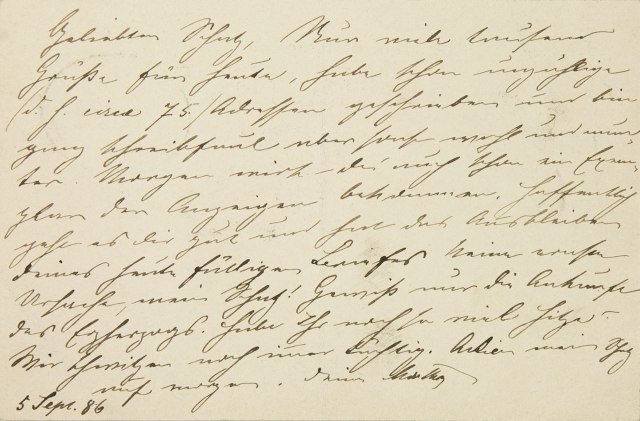 Geliebter Schatz, Nur viele tausend
Grüße für heute, habe schon unzählige
(d. h. circa 75) Adressen geschrieben und bin
ganz schreibfaul aber sonst wohl und mun-
ter. Morgen wirst du auch schon ein Exem-
plar der Anzeigen bekommen. Hoffentlich
geht es dir gut und hat das Ausbleiben
deines heute fälligen Briefes keine ernste
Ursache, mein Schatz! Gewiß nur die Ankunft
des Erzherzogs. Habt Ihr noch so viel Hitze –
Wir schwitzen noch immer tüchtig. Adieu mein Schatz
auf morgen. Deine
5 Sept. 86